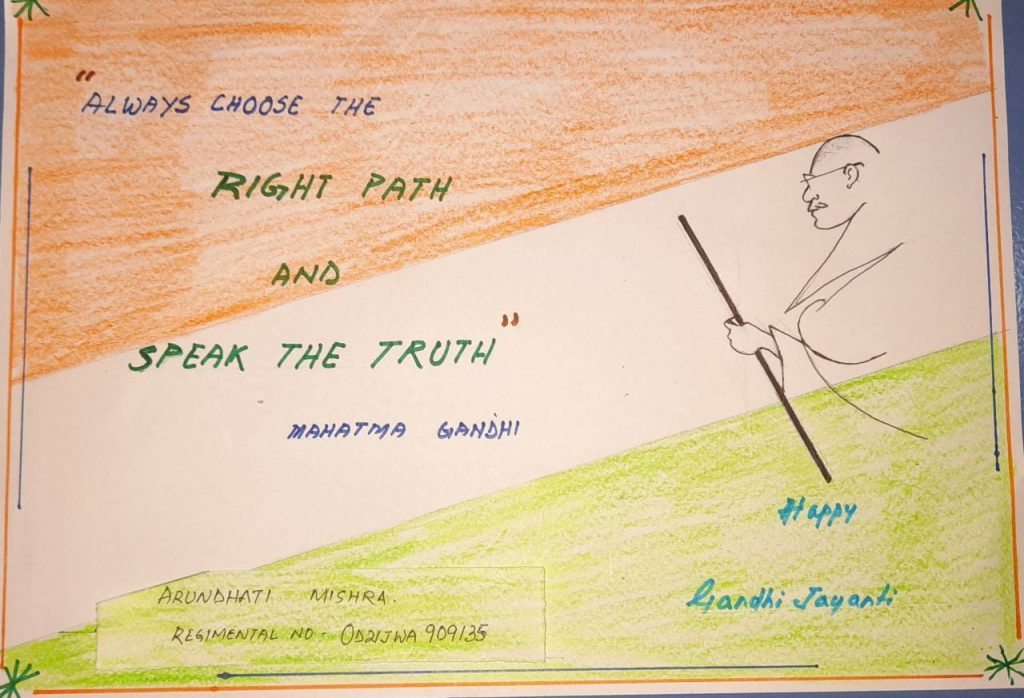 "ALWAYS CHOOSE THE
RIGHT PATH
AND
SPEAK THE TRUTH"
MAHATMA GANDHI
Happy
Gandhi Jayanti
ARUNDHATI MISHRA.
REGIMENTAL NO- OD21JWA 909135